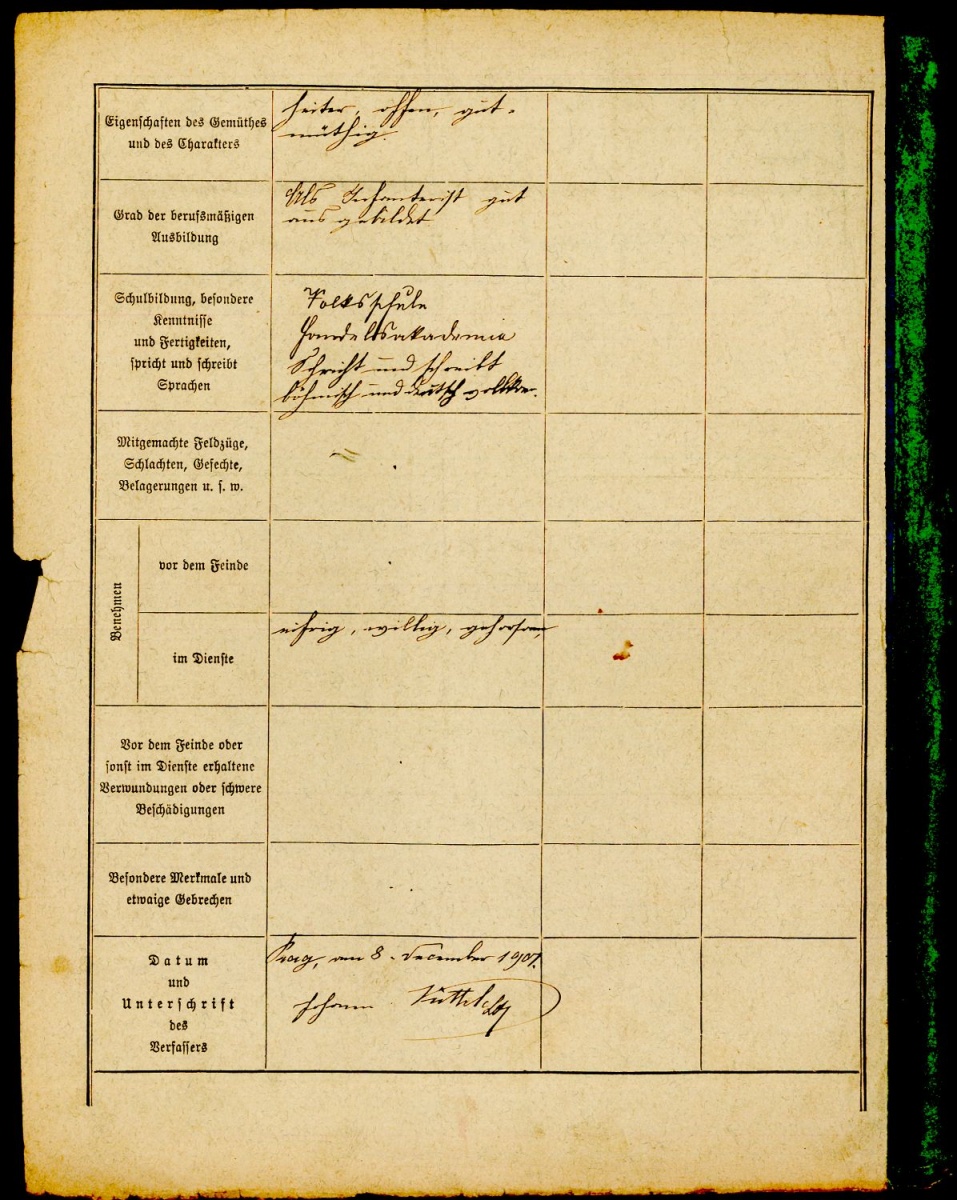 Eigenschaften des Gemüthes
und des Charakters
heiter, offen, gut-
müthig.
Grad der berufsmäßigen
Ausbildung
Als Infanterist gut
ausgebildet
Schulbildung, besondere
Kenntnisse
und Fertigkeiten,
spricht und schreibt
Sprachen
Volksschule
Handelsakademie
Spricht und schreibt
böhmisch und deutsch vollkom.
Mitgemachte Feldzüge,
Schlachten, Gefechte,
Belagerungen u. s. w.
Benehmen
vor dem Feinde
im Dienste
eifrig, willig, gehorsam,
Vor dem Feinde oder
sonst im Dienste erhaltene
Verwundungen oder schwere
Beschädigungen
Besondere Merkmale und
etwaige Gebrechen
Datum
und
Unterschrift
des
Verfassers
Prag, am 8. December 1907.
Johann